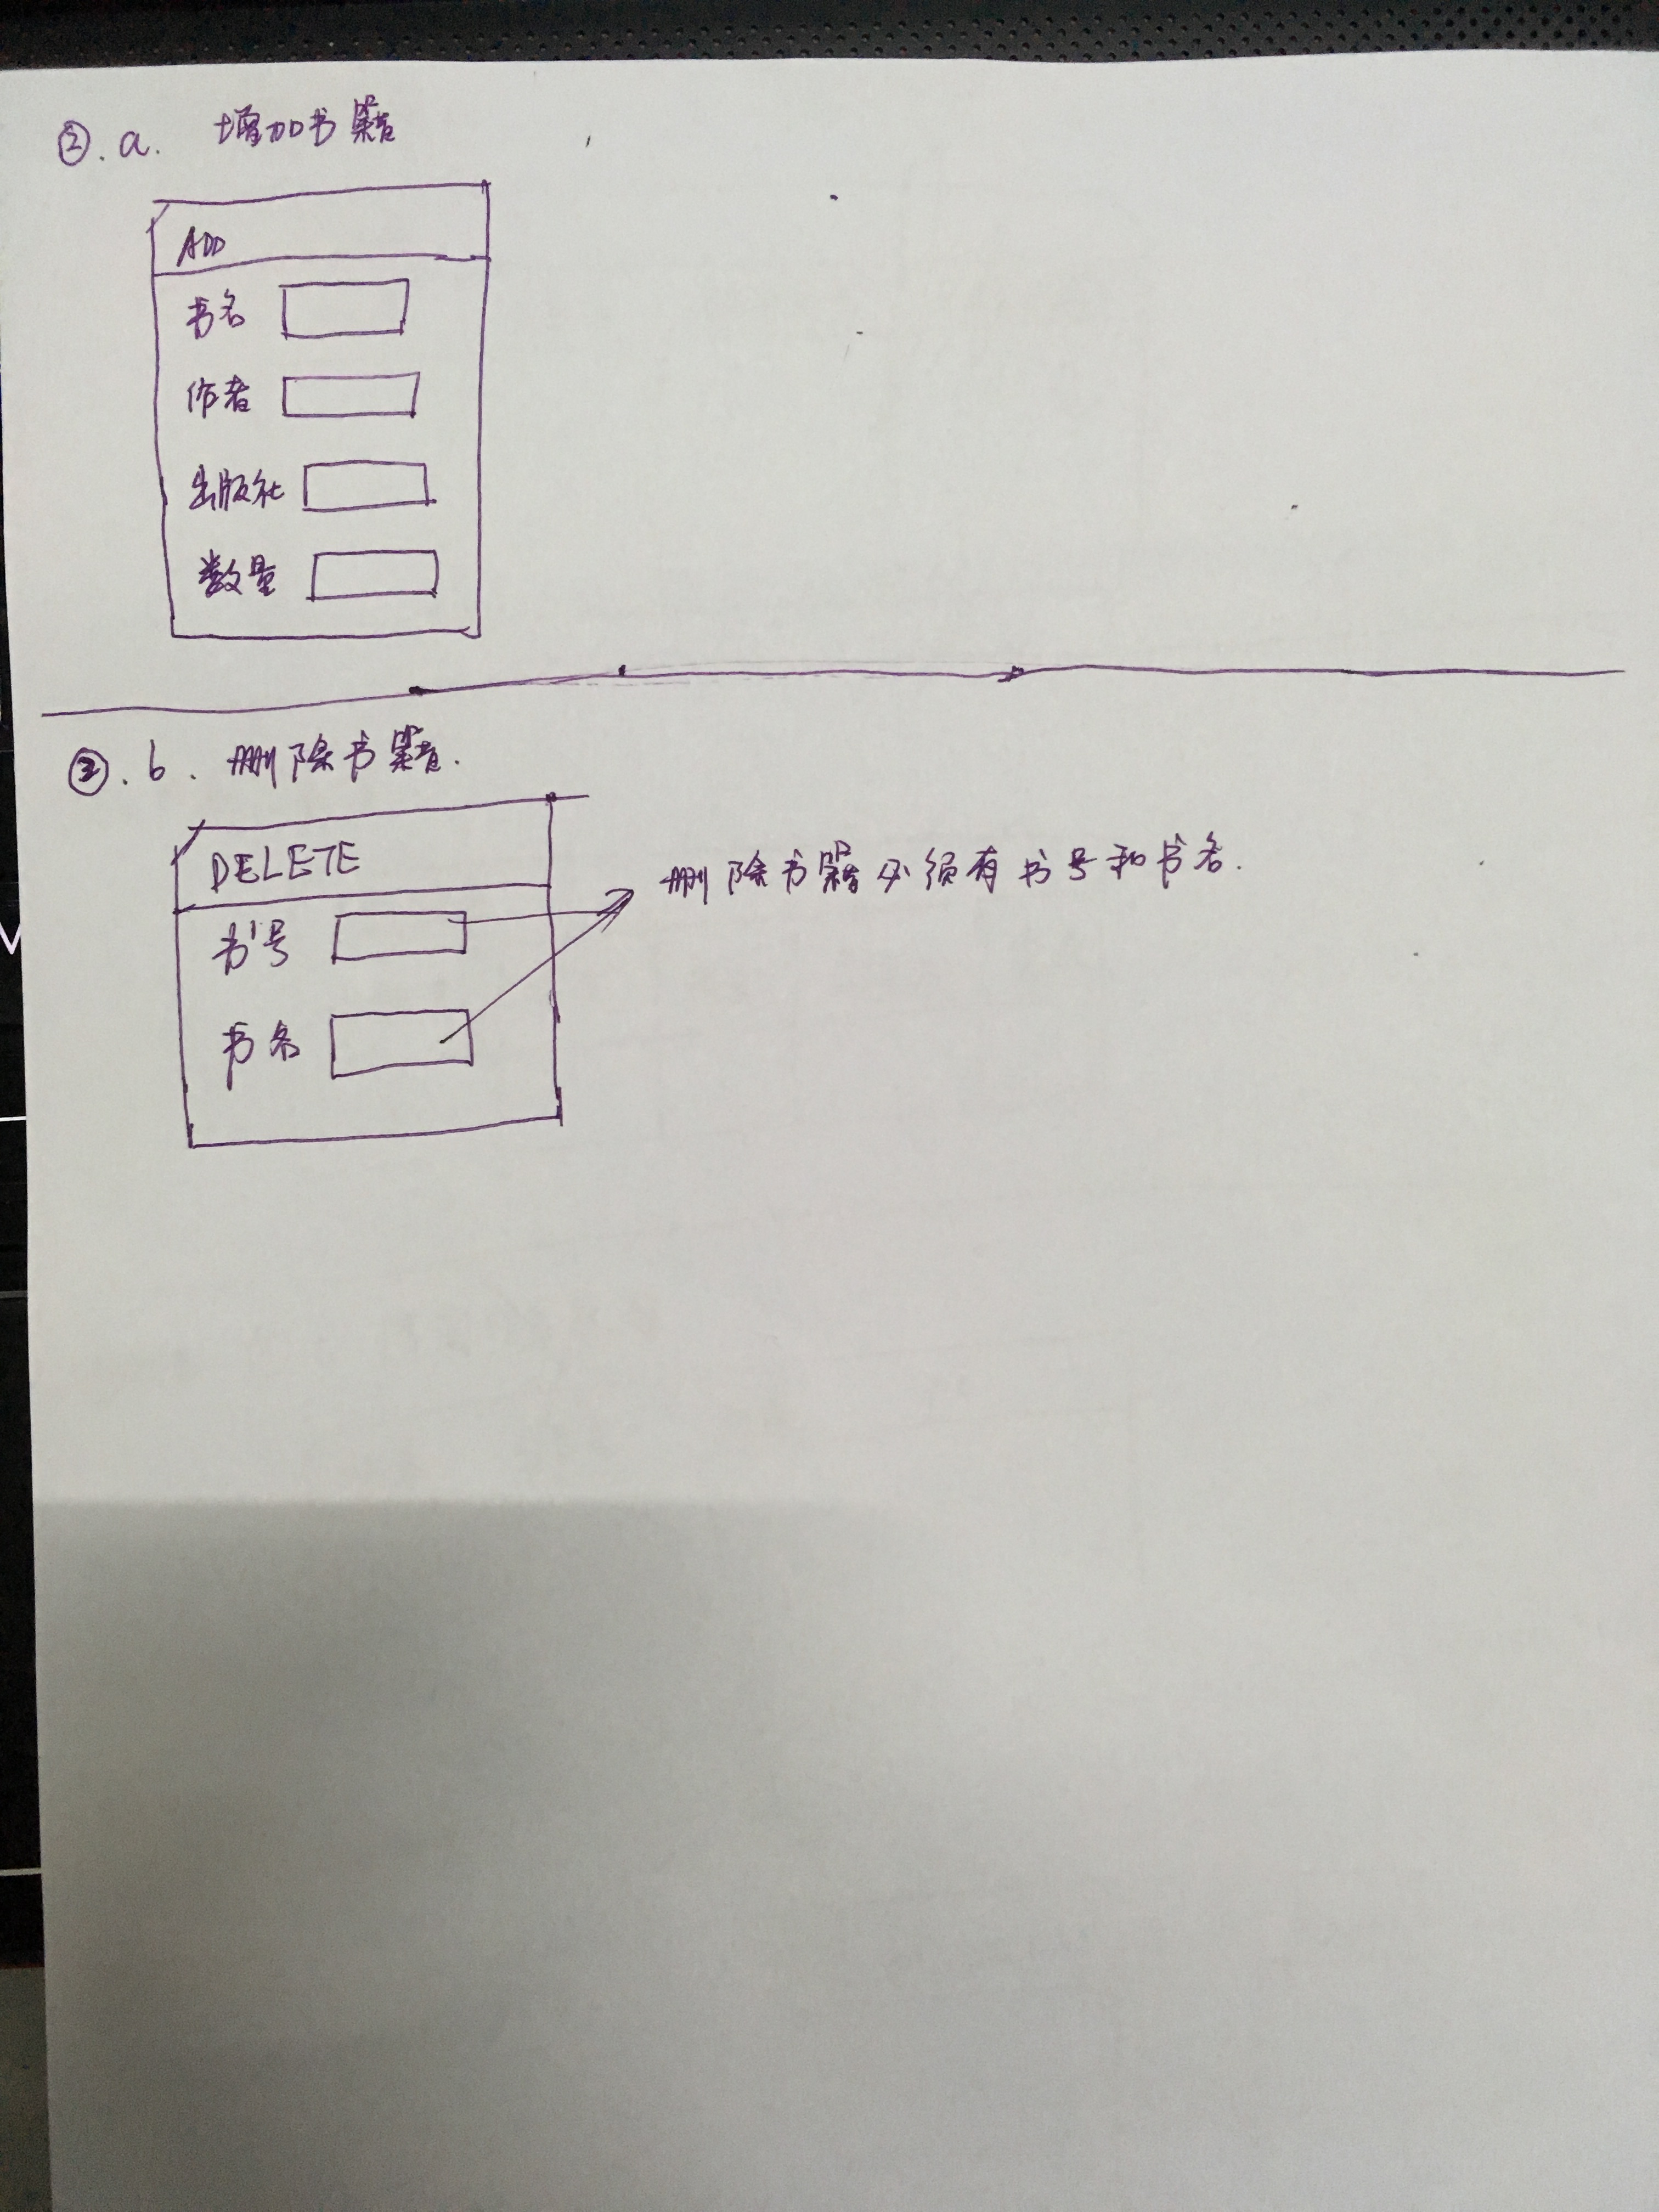 ②.a. 增加书籍
ADD
书名
作者
出版社
数量
②.b. 删除书籍.
DELETE
书号
书名
删除书籍必须有书号和书名.